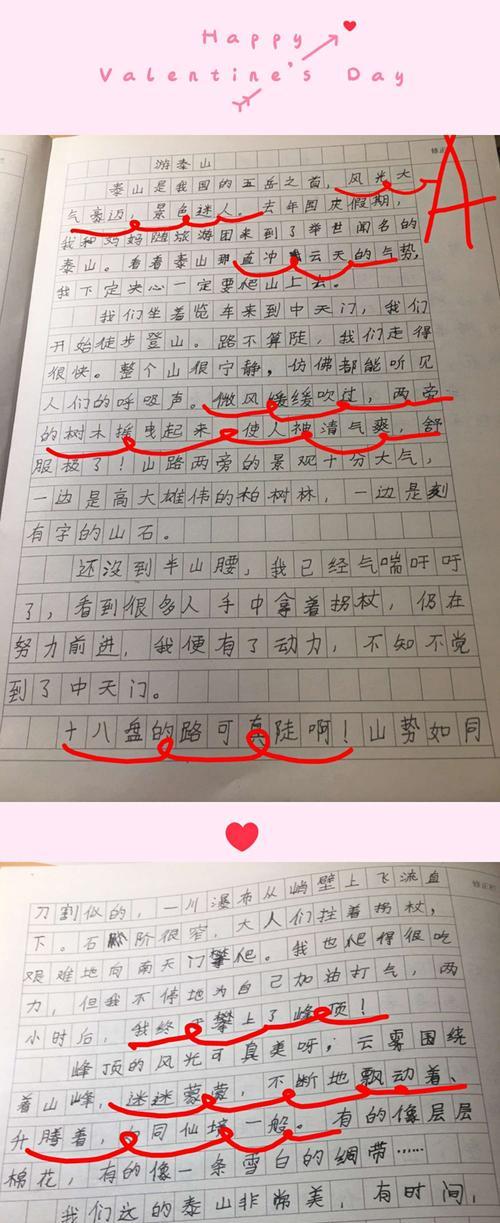 Happy
Valentine's Day
修正栏
A
游泰山
泰山是我国的五岳之首,风光大
气豪迈,景色迷人。去年国庆假期,
我和妈妈随旅游团来到了举世闻名的
泰山。看着泰山那直冲云天的气势,
我下定决心一定要爬山上去。
我们坐着览车来到中天门,我们
开始徒步登山。路不算陡,我们走得
很快。整个山很宁静,仿佛都能听见
人们的呼吸声。微风缓缓吹过,两旁
的树木摇曳起来,使人神清气爽,舒
服极了!山路两旁的景观十分大气,
一边是高大雄伟的柏树林,一边是刻
有字的山石。
还没到半山腰,我已经气喘吁吁
了,看到很多人手中拿着拐杖,仍在
努力前进,我便有了动力,不知不觉
到了中天门。
十八盘的路可真陡啊!山势如同
修正栏
刀割似的,一川瀑布从峭壁上飞流直
下。石阶很窄,大人们拄着拐杖,
艰难地向南天门攀爬。我也爬得很吃
力,但我不停地为自己加油打气,两
小时后,我终于攀上了峰顶!
峰顶的风光可真美呀;云雾围绕
着山峰,迷迷蒙蒙,不断地飘动着、
升腾着,如同仙境一般。有的像层层
棉花,有的像一条雪白的绸带……
我们这的泰山非常美,有时间,